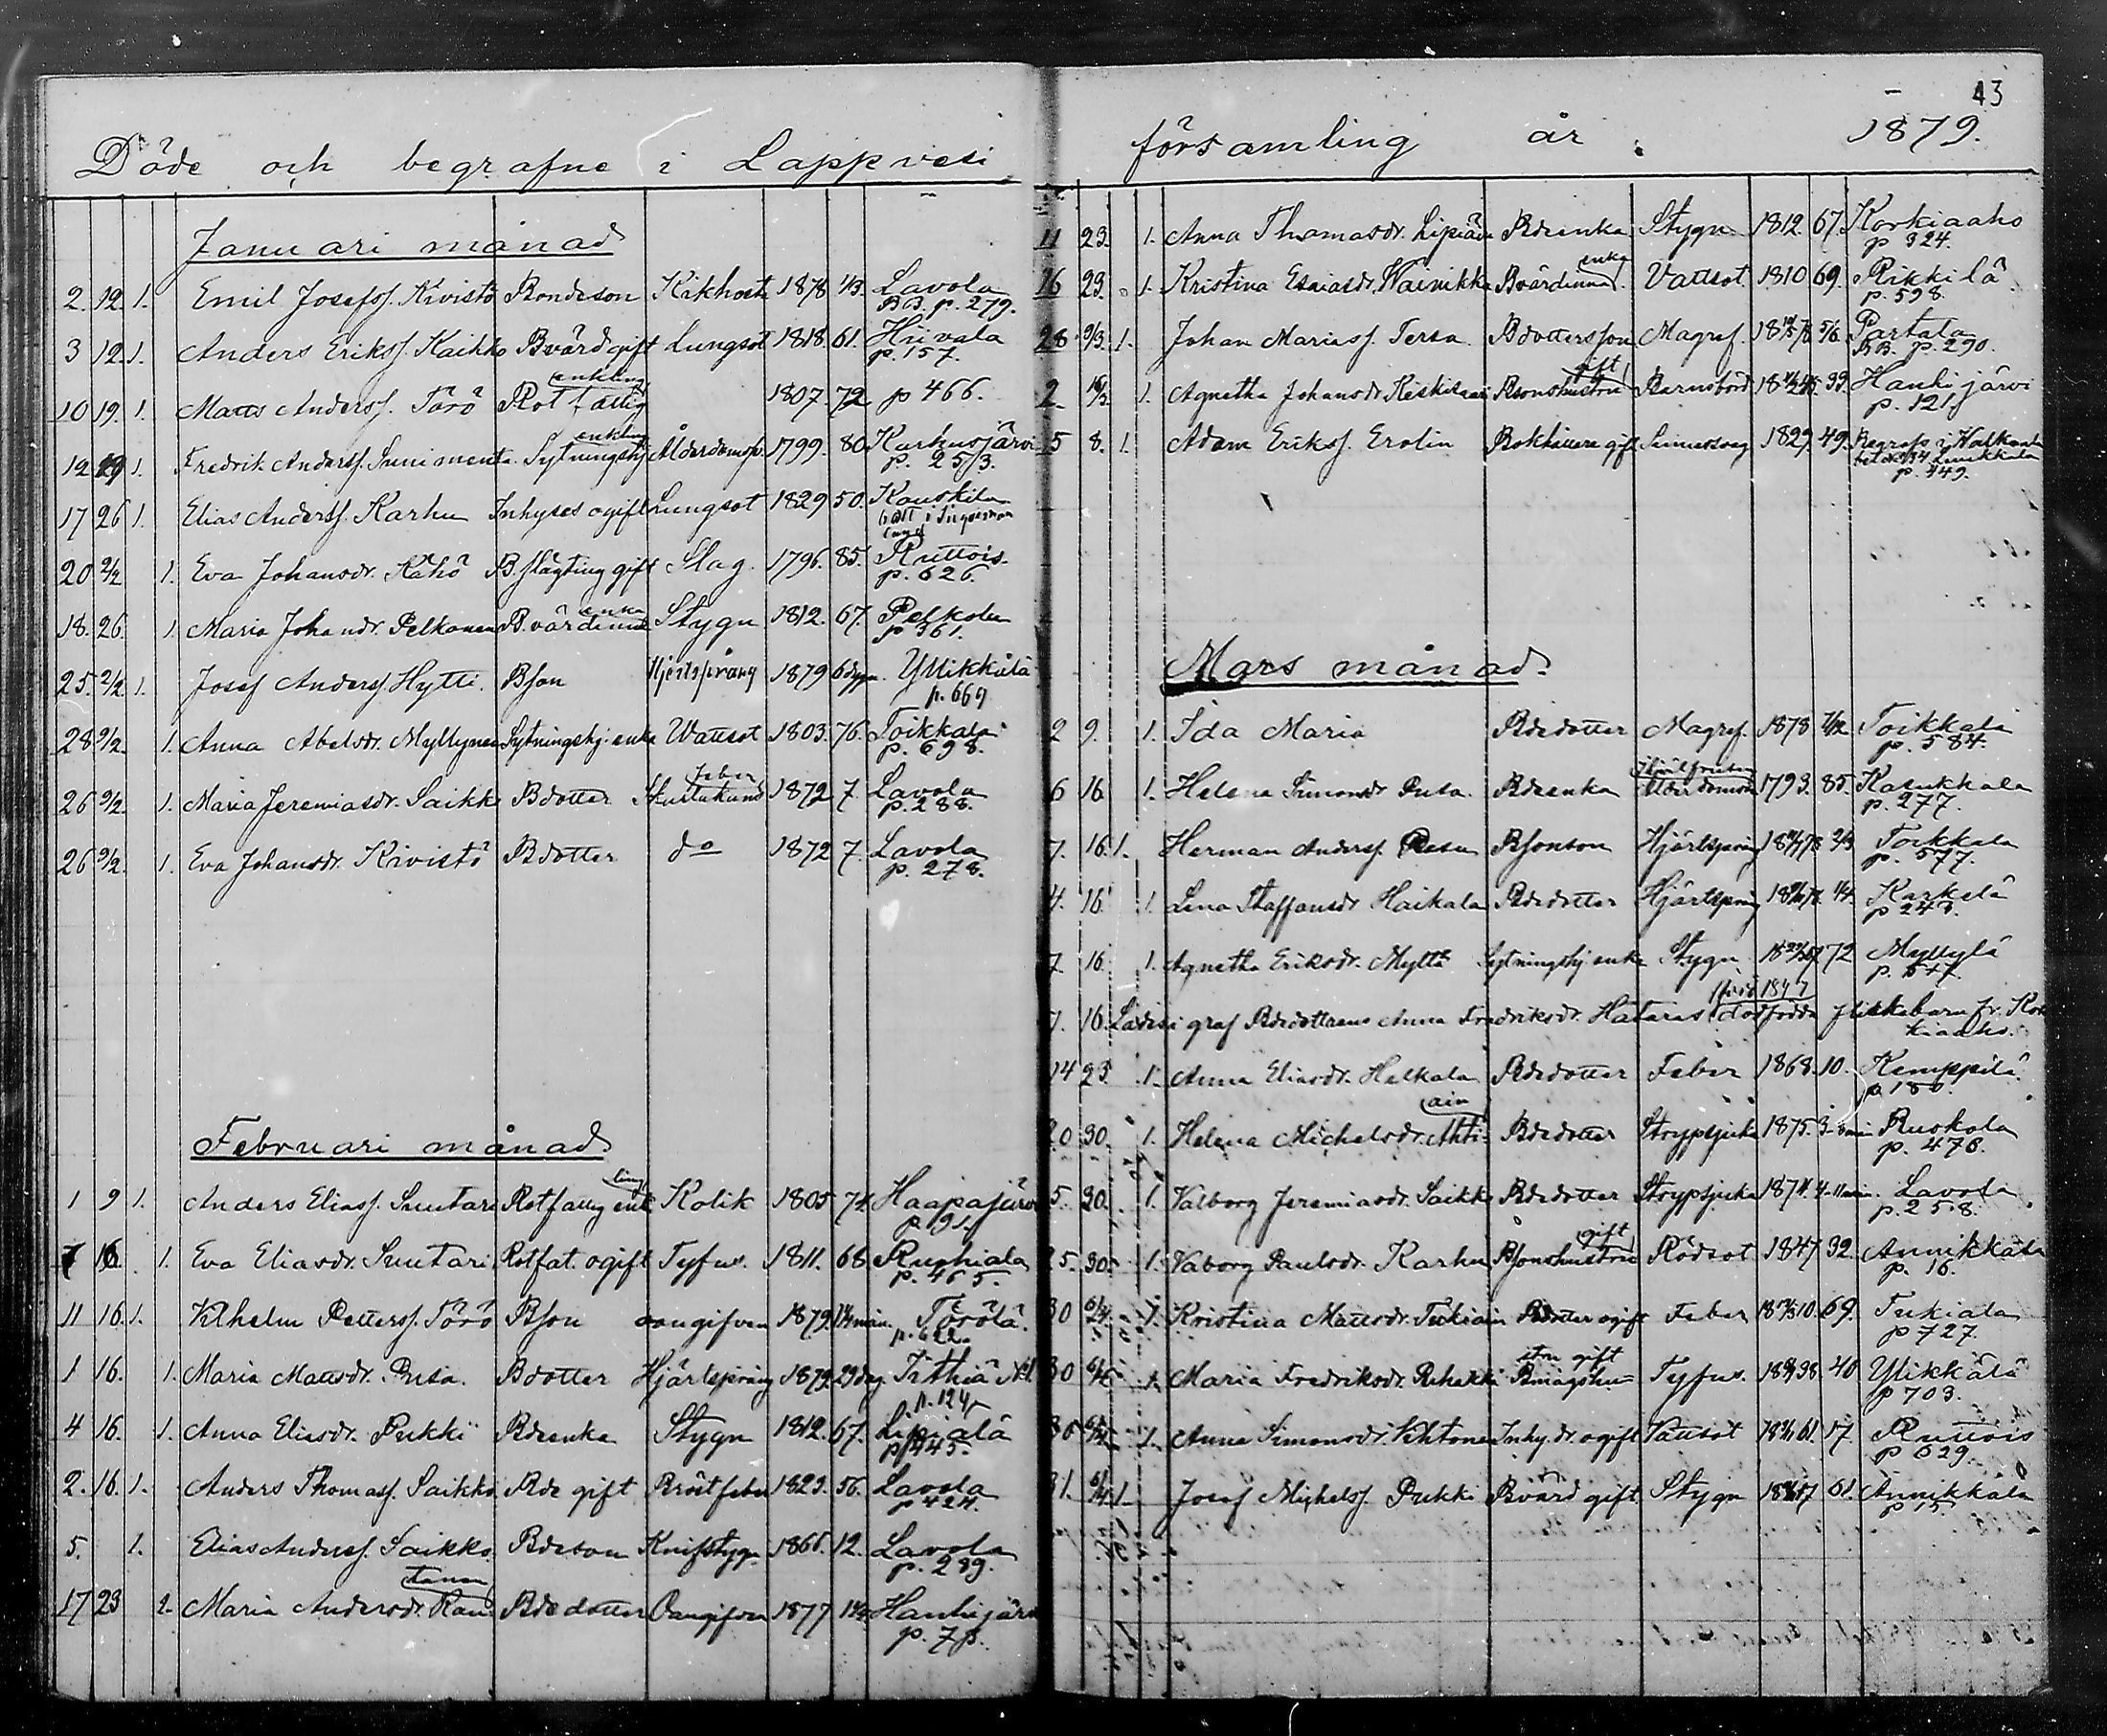 43
Döde och begrafne i Lappvesi församling år 1879.
Januari månad
2. 12. 1. Emil Josefss. Kivistö Bondeson Kikhosta 1878 1/3. Lavola
BB. p. 279.
3 12. 1. Anders Erikss. Kaikko Bvärd gift Lungsot 1818. 61. Hiivala
p. 157.
enkling
10 19. 1. Matts Anderss. Törö Rotfattig 1807. 72 p 466.
enkling
12 19 1. Fredrik Anderss. Sytningshj Ålderdomsv. 1799. 80 Karhusjärvi
p. 253.
17 26 1. Elias Anderss. Karhu Inhyses ogift Lungsot 1829 50. Kauskila
20 2/2 1. Eva Johansdr. Rähö B. flägting gift Slag. 1796. 85. Ruttois
p. 626.
enka
18. 26. 1. Maria Johansdr. Pelkonen B. värdinna Stygn 1812. 67. Pelkola
p 361.
25. 2/2 1. Josef Anderss. Hytti. Bson Hjertsprång 1879 6 dygn. Ylikkälä
p. 669
28 9/2. 1. Anna Abelsdr. Myllynen Sytningshj. enka Wattsot 1803. 76. Toikkala
p. 698.
feber
26 9/2. 1. Maria Jeremiasdr. Saikko Bdotter 1872 7. Lavola
p. 288.
26 9/2. 1. Eva Johansdr. Kivistö Bdotter do 1872 7. Lavola
p. 278.
Februari månad
ling
1 9 1. Anders Eliass. Suntari Rotfattig enk Kolik 1805 74 Haapajärvi
p. 91.
7 16. 1. Eva Eliasdr. Suntari Rotfat. ogift Tyfus. 1811. 68 Ruohiala
p. 465.
11 16. 1. Vilhelm Petterss. Törö Bson oangifven 1879. Törölä.
p. 622.
1 16. 1. Maria Mattsdr. Pusa. Bdotter Hjärtsprång 1879. 29 dag
p. 124
4 16. 1. Anna Eliasdr. Pukki Bdeenka Stygn 1812. 67. Lipiälä
p. 445.
2. 16. 1. Anders Thomass. Saikko Bde gift Bröstfeber 1823. 56. Lavola
p 424.
5. 1. Elias Anderss. Saikko Bdeson Knifstygn 1866. 12. Lavola
p. 289.
tanen
17 23 1. Maria Andersdr. Ran Bdedotter Oangifven 1877 Hanhijärvi
p. 78.
11 23. 1. Anna Thomasdr. Lipiäin Bdeenka Stygn 1812. 67. Korkiaaho
p 324.
enka
16 23. 1. Kristina Esaiasdr. Wainikka Bvärdinna Vattsot 1810 69. Rikkilä
p. 598.
28 9/3. 1. Johan Mariass. Tersa Bdottersson Magref. 5/6. Partala
BB. p. 290.
gift
2. 16/3. 1. Agnetha Johansdr Bsonshustru Barnsbörd 33. Hanhijärvi
p. 121
5 8. 1. Adam Erikss. Erolin gift 1829. 49.
p. 449.
Mars månad.
2 9. 1. Ida Maria Bdedotter Magref. 1878 Toikkala
p. 584.
6 16 1. Helena Simonsdr Pusa. Bdeenka Ålderdoms 1793. 85. Kasukkala
p. 277.
7. 16. 1. Herman Anderss. Pusa Bsonson Hjärtsprång Toikkala
p. 577.
4. 16. 1. Lena Staffansdr Haikala Bdedotter Hjärtsprång 1/4. Karkelä
p 243.
7 16. 1. Agnetha Eriksdr. Mytta Sytningshj enka Stygn 72 Myllylä
p. 547
7. 16. Lades i graf Bdedottrens Anna Fredriksdr. Hataras dödfödda flickebarn fr. Kor
kiaaho.
14 23 1. Anna Eliasdr. Halkala Bdedotter Feber 1868. 10. Kemppilä
p 180.
ain
20 30. 1. Helena Michelsdr. Ahti- Bdedotter Strypsjuka 1875. 3 Ruokola
p. 476.
5. 30. 1. Valborg Jeremiasdr. Saikko Bdedotter Strypsjuka 1874. Lavola
p. 258.
gift
25. 30. 1. Vaborg Paulsdr. Karhu Bsonshustru Rödsot 1847 32. Annikkala
p. 16.
30 6/4. 1. Kristina Mattsdr. Tukiain Bdotter ogift Feber 69. Tukiala
p 727.
stru gift
30 6/4 1. Maria Fredriksdr. Rehakka Bmågshu= Tyfus. 40 Ylikkälä
p 703.
30 6/4 1. Anna Simonsdr. Vihtonen Inhy. dr. ogift Vattsot 17. Ruttois
p 629.
31. 6/4 1. Josef Michelss. Pukki Bvärd gift Stygn 61. Annikkala
p 15.